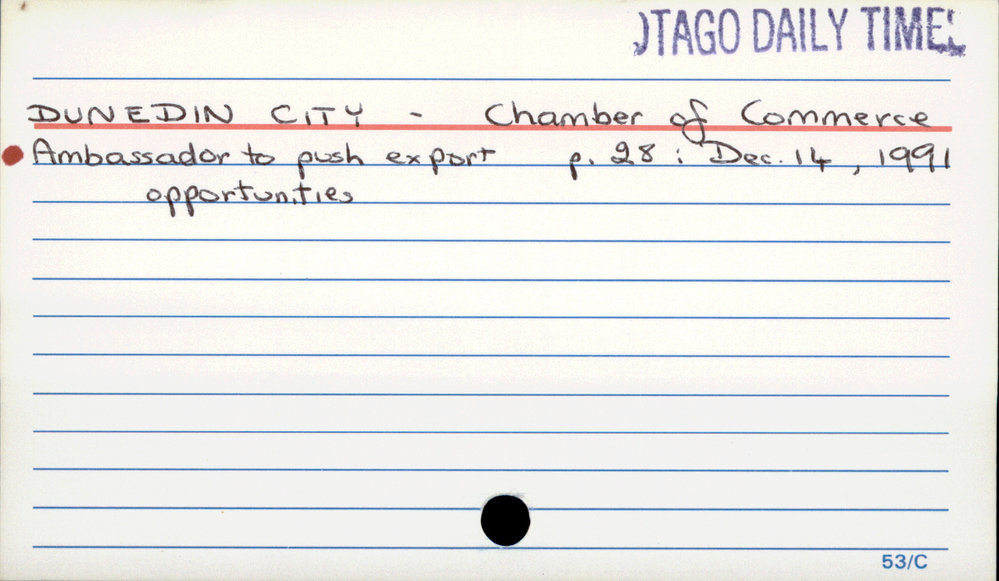 OTAGO DAILY TIMES
DUNEDIN CITY - Chamber of Commerce
Ambassador to push export p. 28 : Dec. 14, 1991
opportunities
53/C